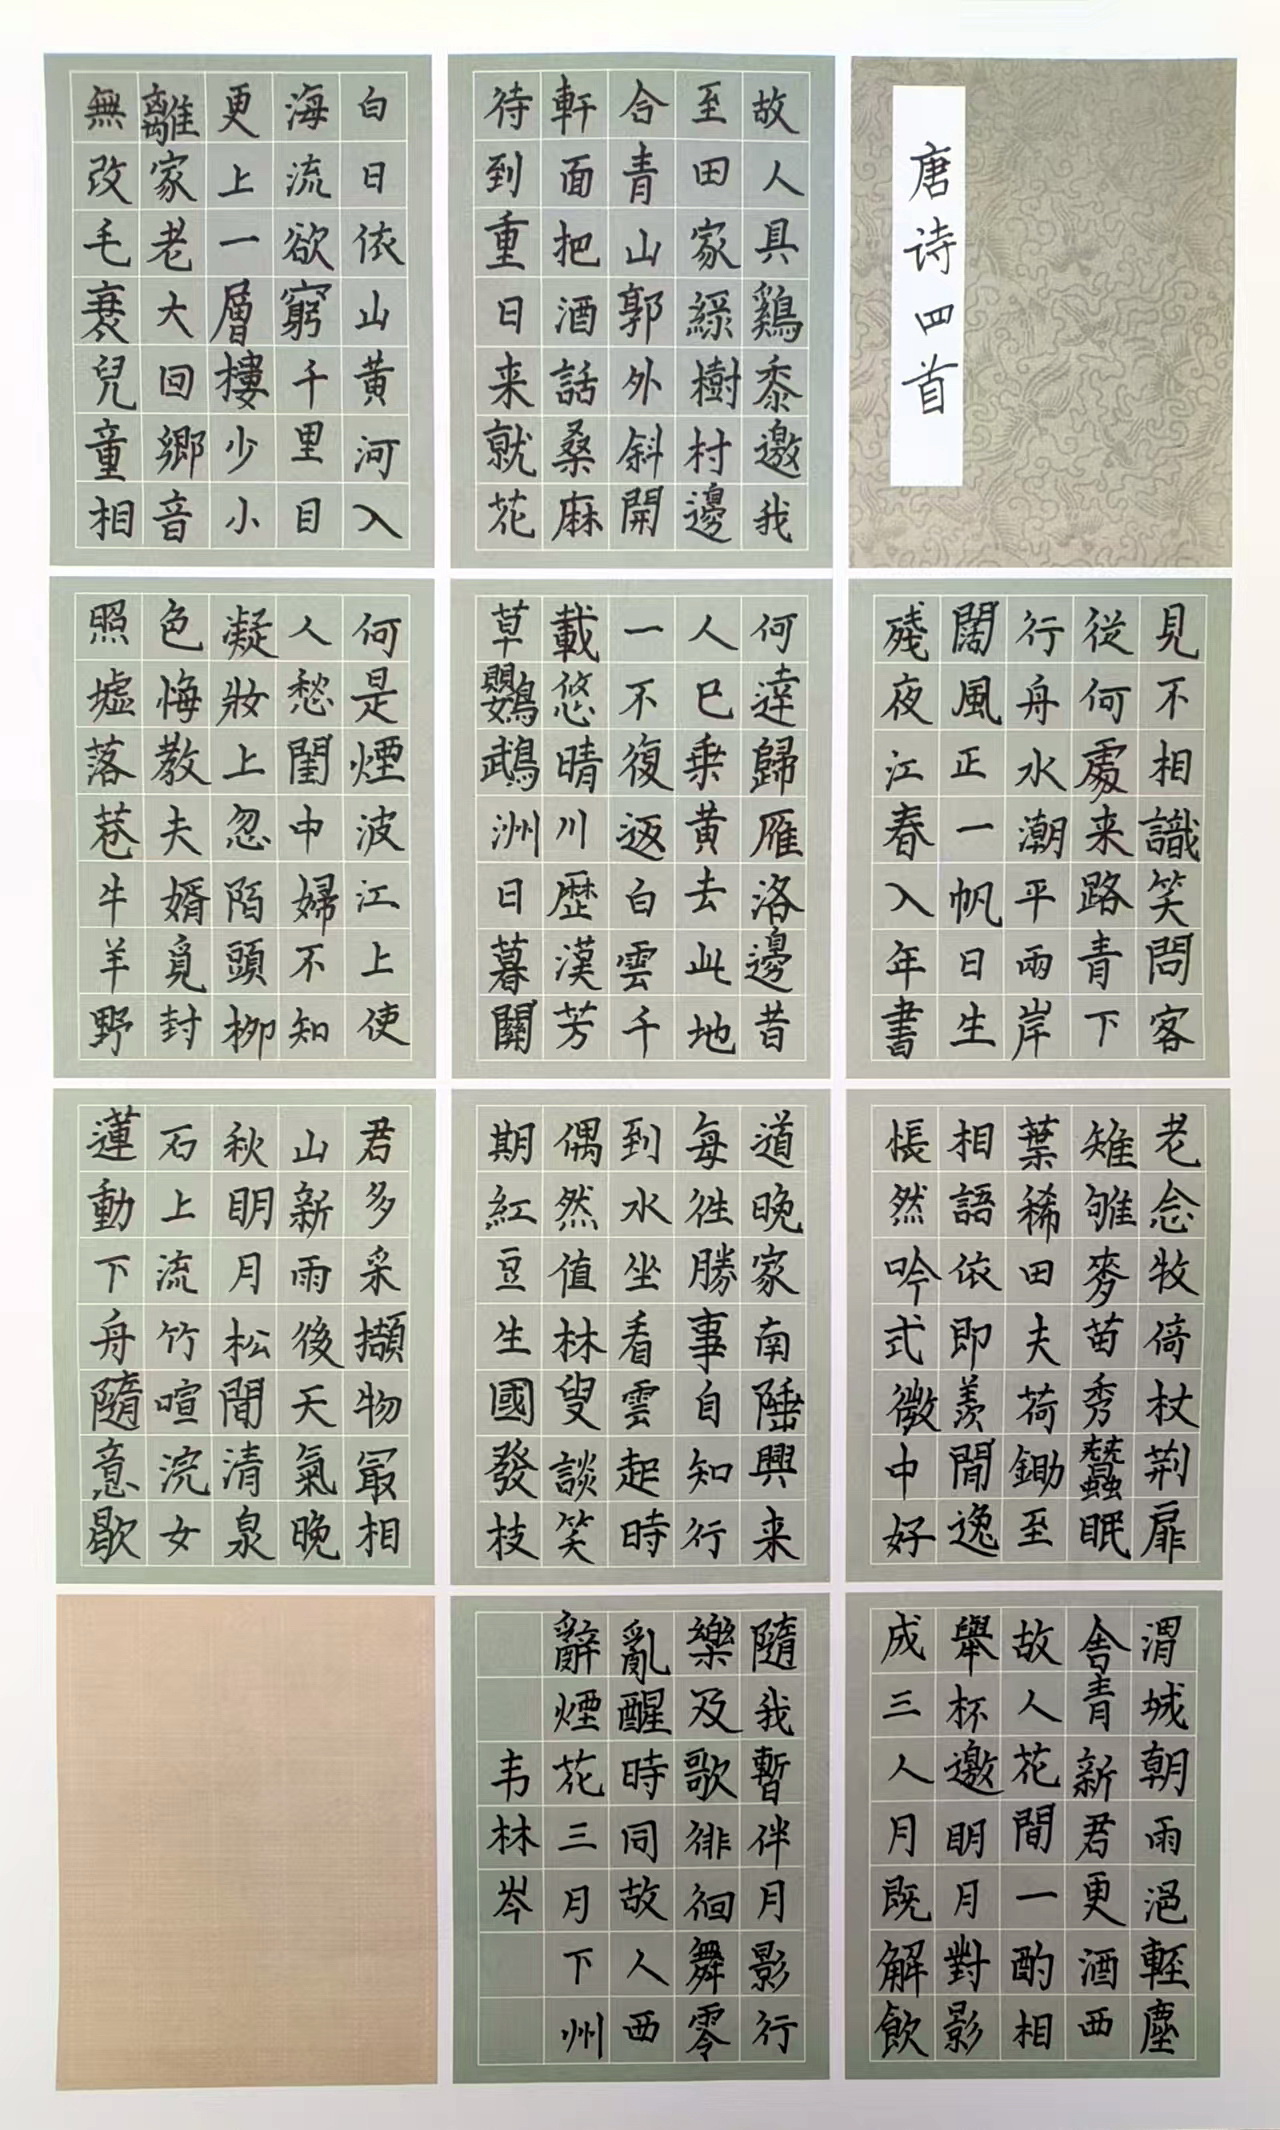 唐诗四首
故人具鷄黍邀我
至田家綠樹村邊
合青山郭外斜開
軒面把酒話桑麻
待到重日来就花
白日依山黄河入
海流欲窮千里目
更上一層樓少小
離家老大回鄉音
無改毛衰兒童相
見不相識笑問客
從何處来路青下
行舟水潮平兩岸
闊風正一帆日生
殘夜江春入年書
何達歸雁洛邊昔
人已乗黄去此地
一不復返白雲千
載悠晴川歷漢芳
草鸚鵡洲日暮關
何是煙波江上使
人愁閨中婦不知
凝妝上忽陌頭柳
色悔教夫婿覓封
照墟落巷牛羊野
老念牧倚杖荆扉
雉雊麥苗秀蠶眠
葉稀田夫荷鋤至
相語依即羨閒逸
悵然吟式微中好
道晚家南陲興来
每往勝事自知行
到水坐看雲起時
偶然值林叟談笑
期紅豆生國發枝
君多采擷物最相
山新雨後天氣晚
秋明月松間清泉
石上流竹喧浣女
蓮動下舟隨意歇
渭城朝雨浥輕塵
舍青新君更酒西
故人花間一酌相
舉杯邀明月對影
成三人月既解飲
隨我暫伴月影行
樂及歌徘徊舞零
亂醒時同故人西
辭煙花三月下州
韦林岑